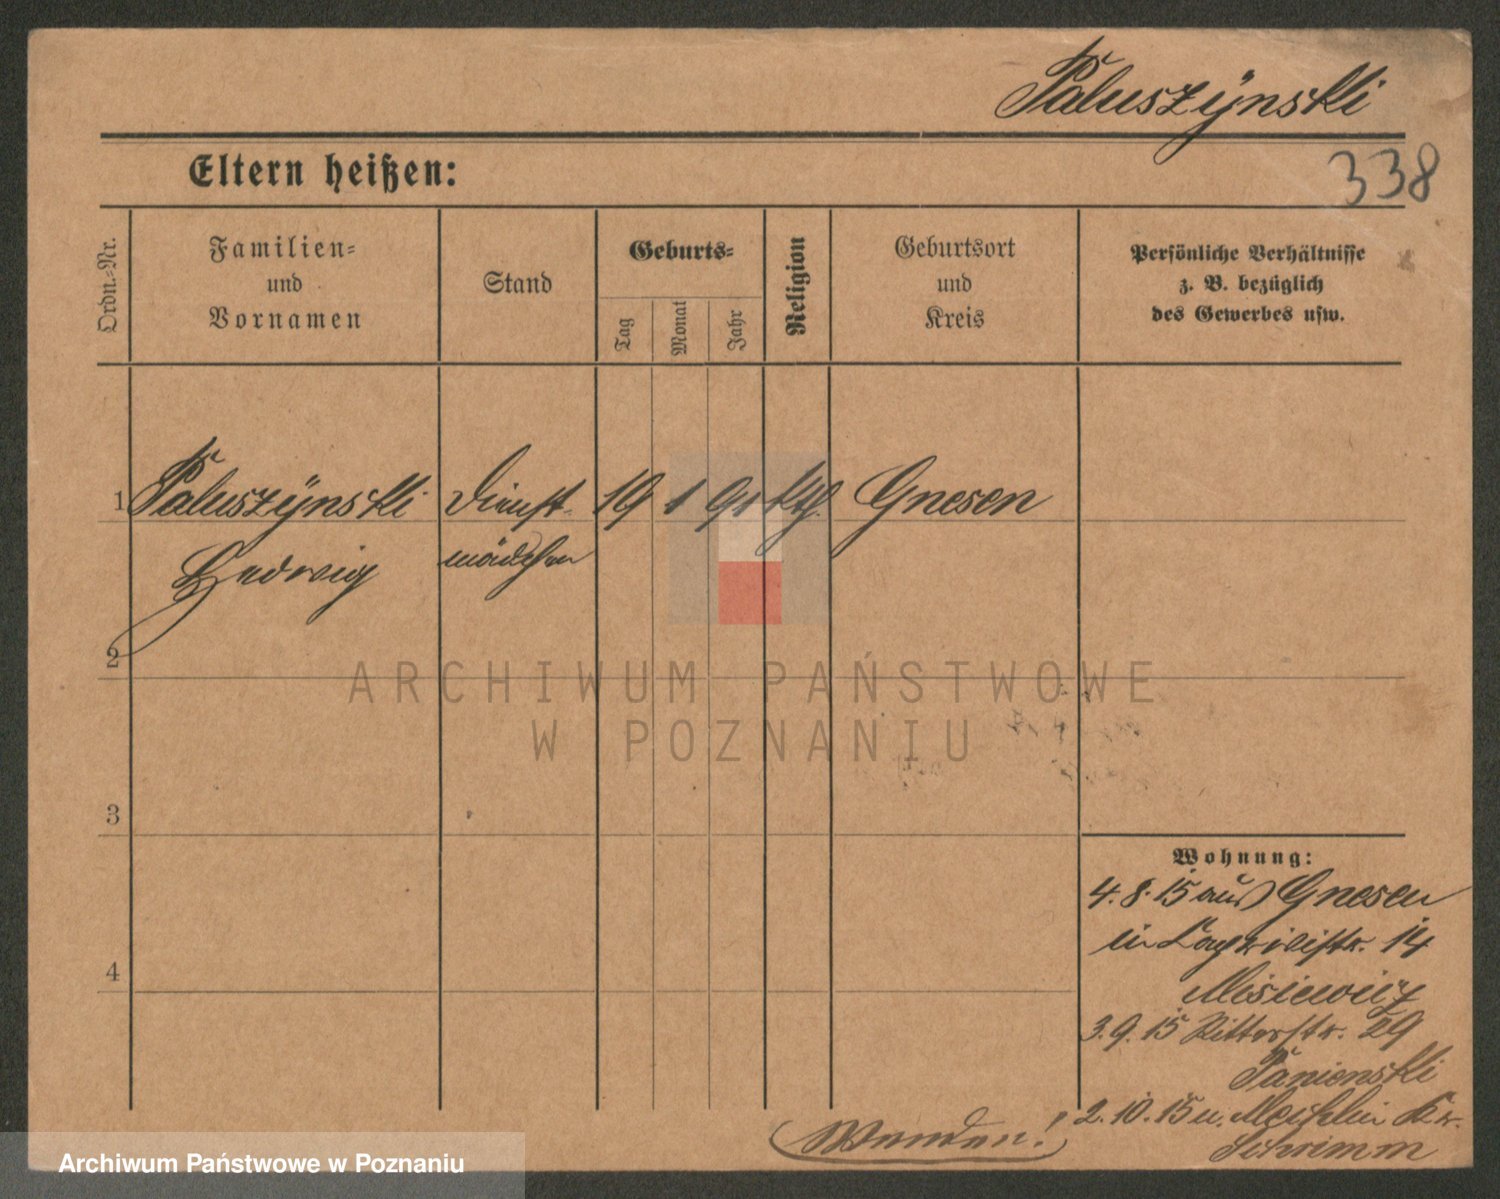 Paluszÿnski
338
Eltern heißen:
Ordn.-Nr.
Familien-
und
Vornamen
Stand
Geburts-
Tag
Monat
Jahr
Religion
Geburtsort
und
Kreis
Persönliche Verhältnisse
z. B. bezüglich
des Gewerbes usw.
1 Paluszÿnski Dienst- 19 1 91 kth. Gnesen
Hedwig mädchen
2
ARCHIWUM PAŃSTWOWE
W POZNANIU
3
Wohnung:
4. 8. 15 aus Gnesen
in 14
4
Misiewicz
3. 9. 15 Ritterstr. 29
Panienski
2. 10. 15 n. Mechlin Kr.
Schrimm
Wenden!
Archiwum Państwowe w Poznaniu